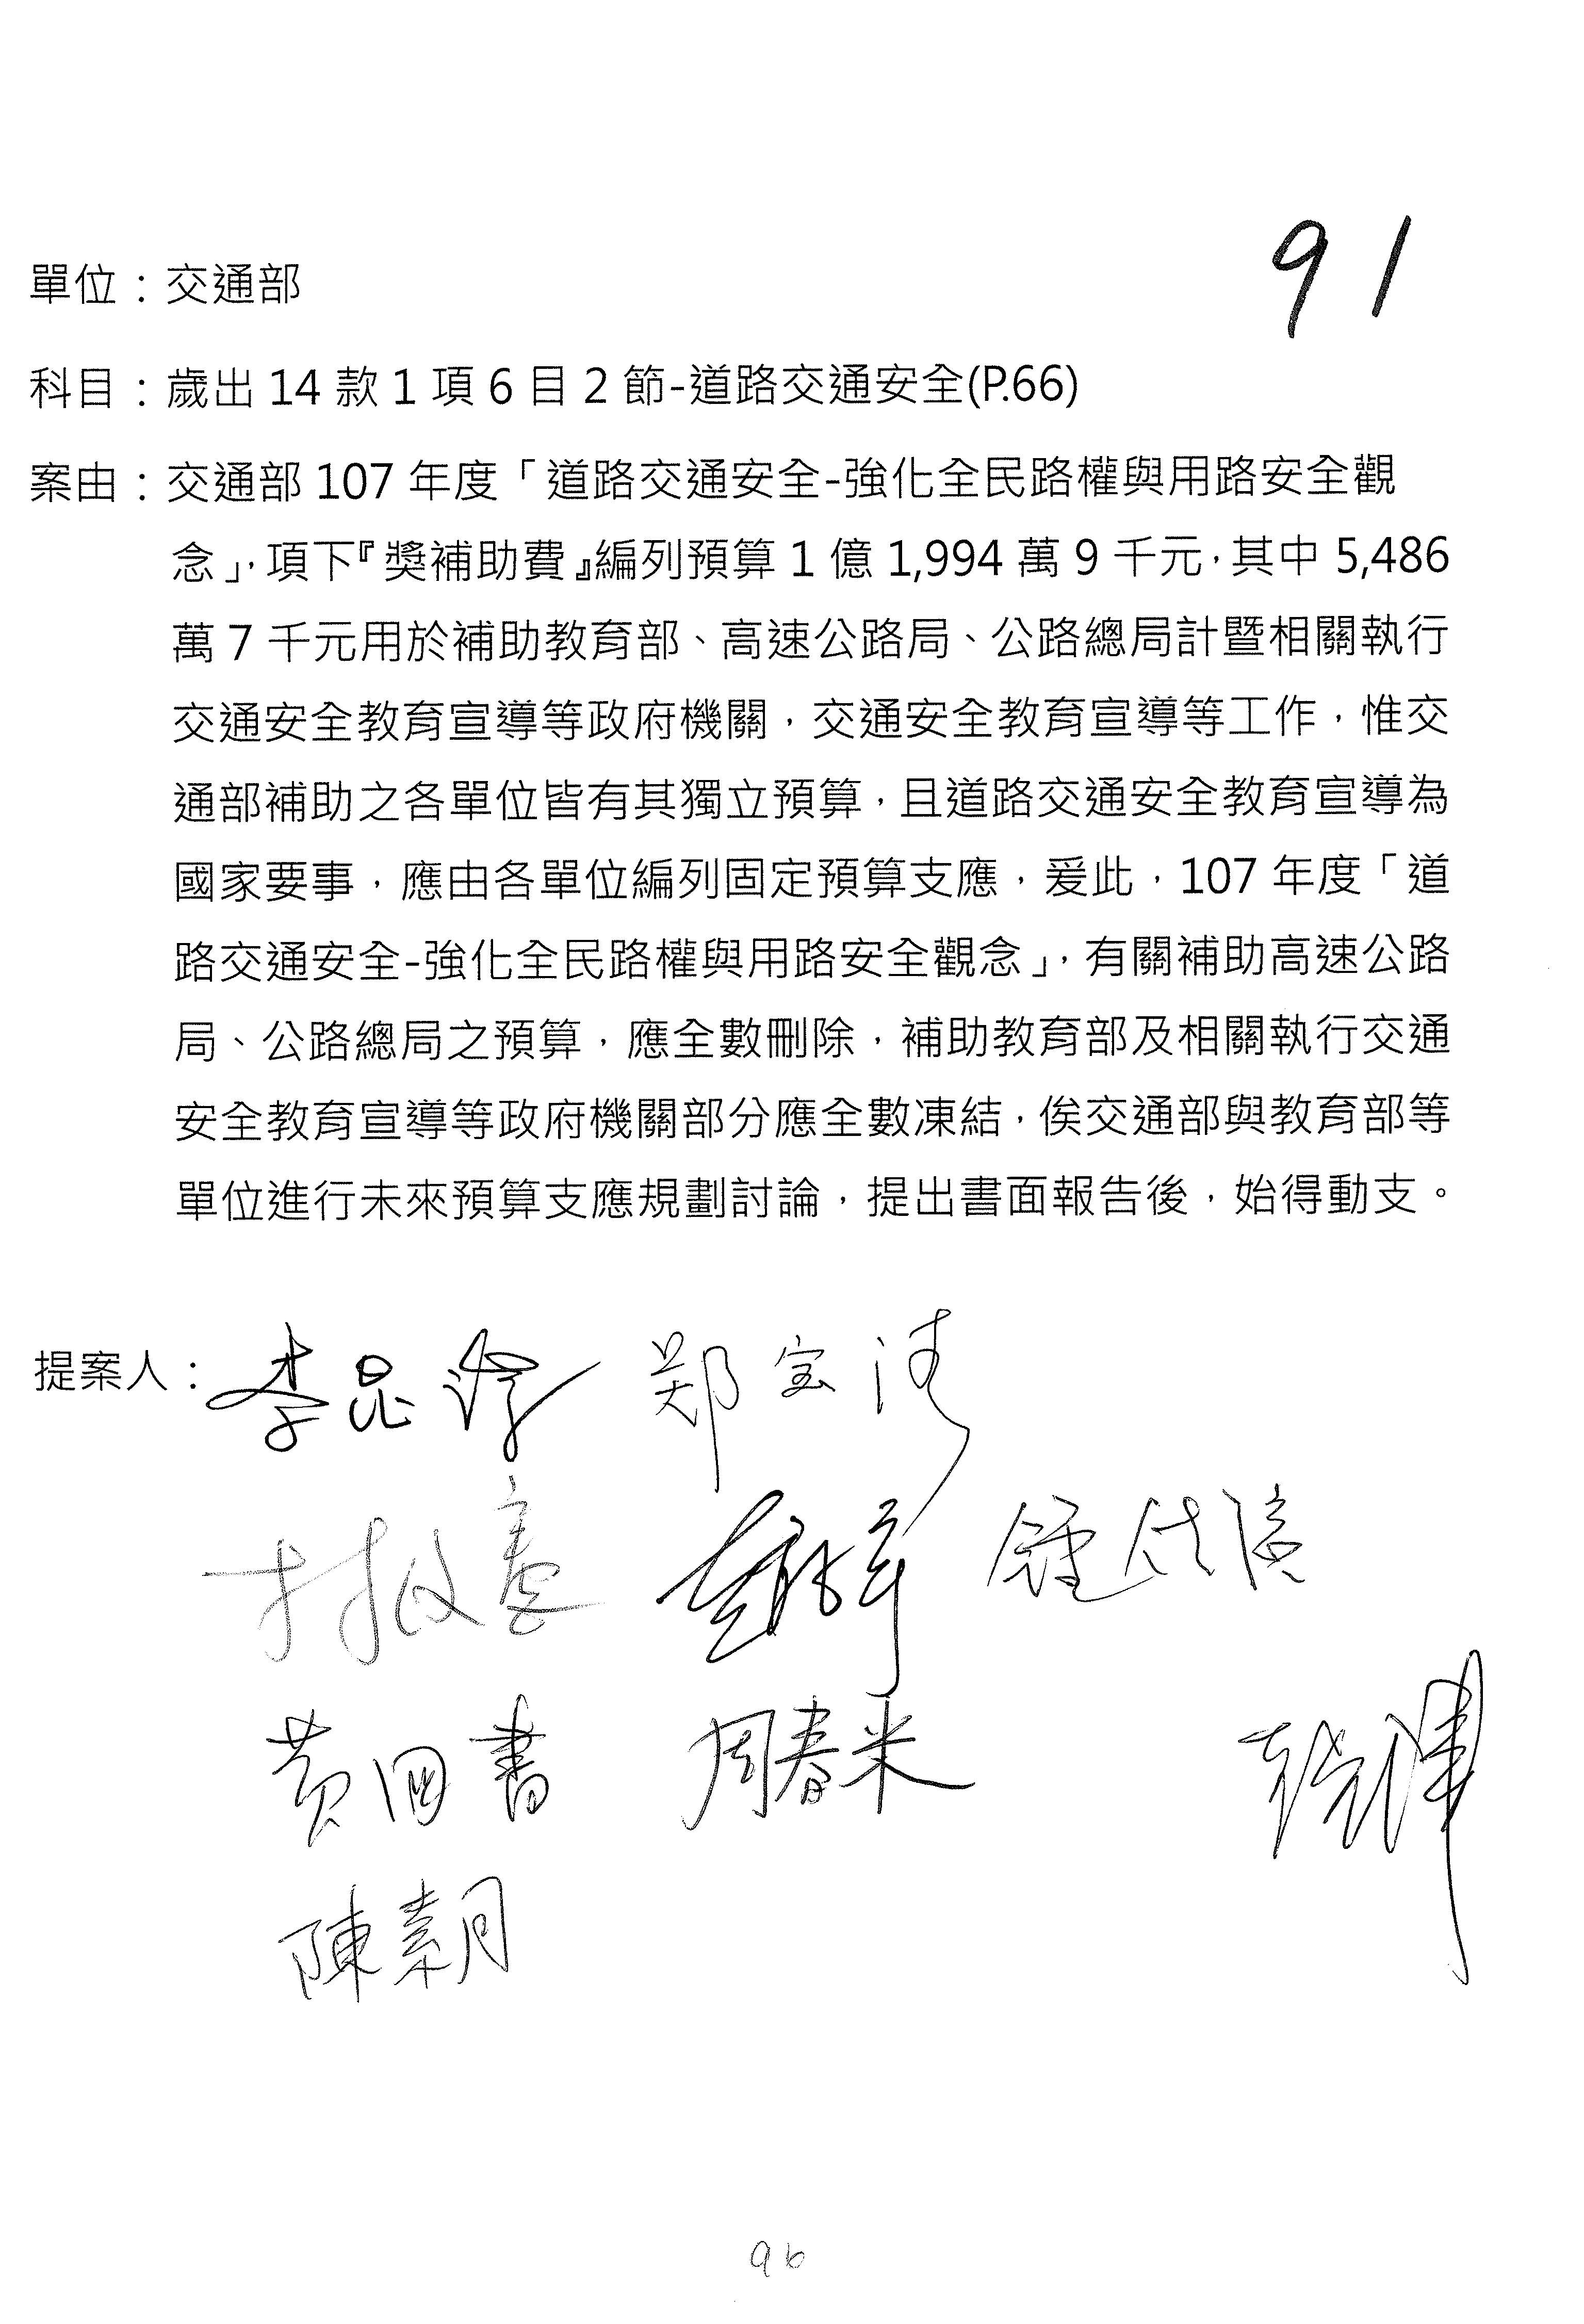 91
單位：交通部
科目：歲出 14 款 1 項 6 目 2 節-道路交通安全(P.66)
案由：交通部 107 年度「道路交通安全-強化全民路權與用路安全觀
念」，項下『獎補助費』編列預算 1 億 1,994 萬 9 千元，其中 5,486
萬 7 千元用於補助教育部、高速公路局、公路總局計暨相關執行
交通安全教育宣導等政府機關，交通安全教育宣導等工作，惟交
通部補助之各單位皆有其獨立預算，且道路交通安全教育宣導為
國家要事，應由各單位編列固定預算支應，爰此，107 年度「道
路交通安全-強化全民路權與用路安全觀念」，有關補助高速公路
局、公路總局之預算，應全數刪除，補助教育部及相關執行交通
安全教育宣導等政府機關部分應全數凍結，俟交通部與教育部等
單位進行未來預算支應規劃討論，提出書面報告後，始得動支。
提案人：李昆澤 郑宝清
黃國書 周春米
陳素月
96